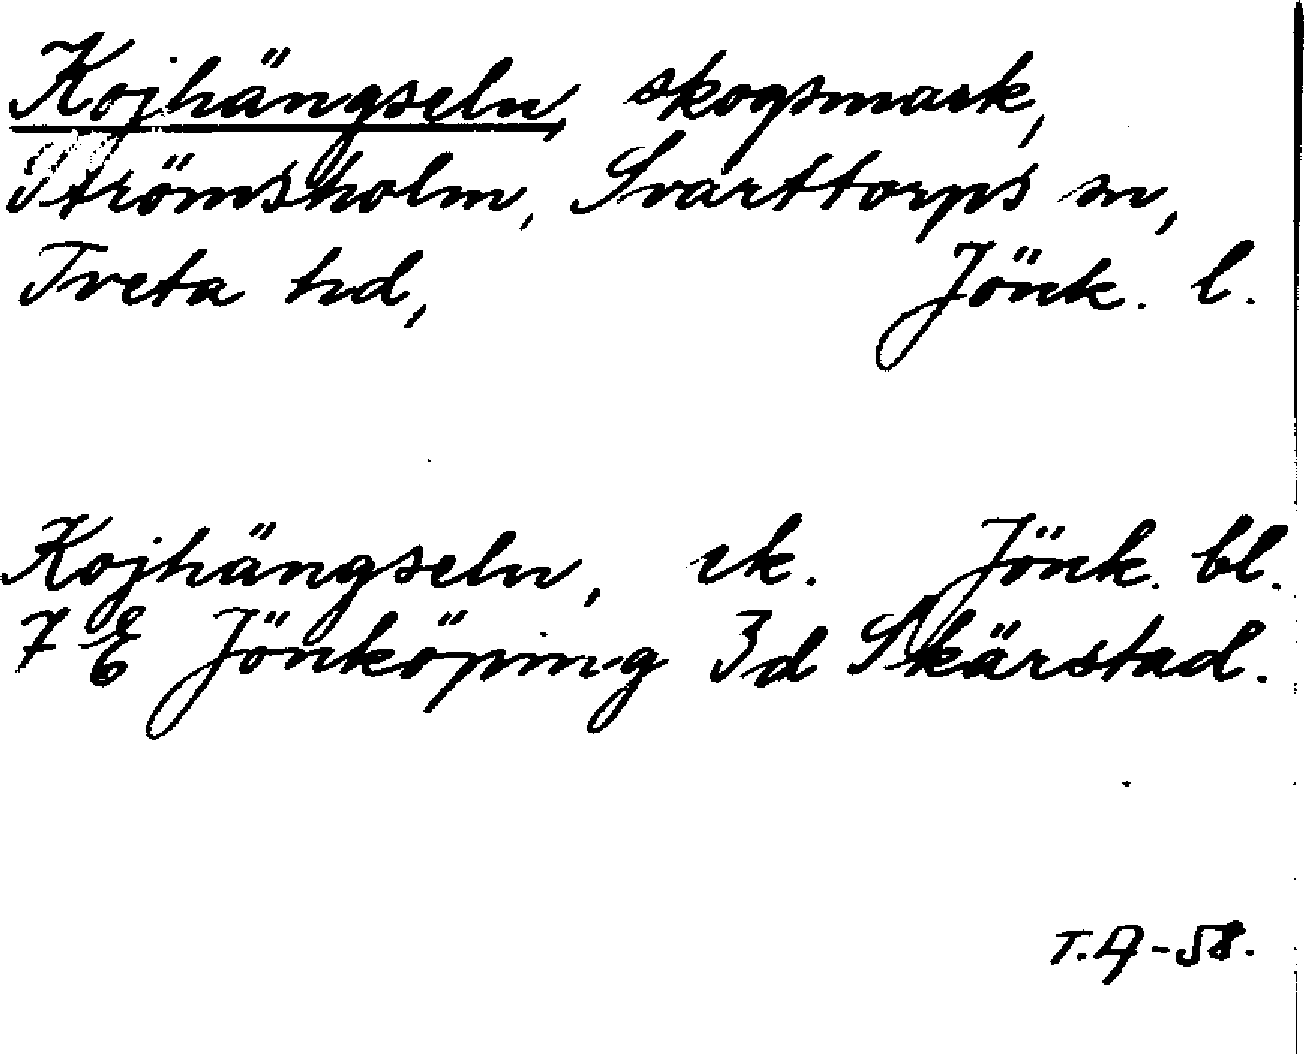 Kojhängseln, skogsmark,
Strömsholm, Svarttorps sn,
Tveta hd, Jönk. l.
Kojhängseln, ek. Jönk. bl.
7 E Jönköping 3d Skärstad.
T.A-58.